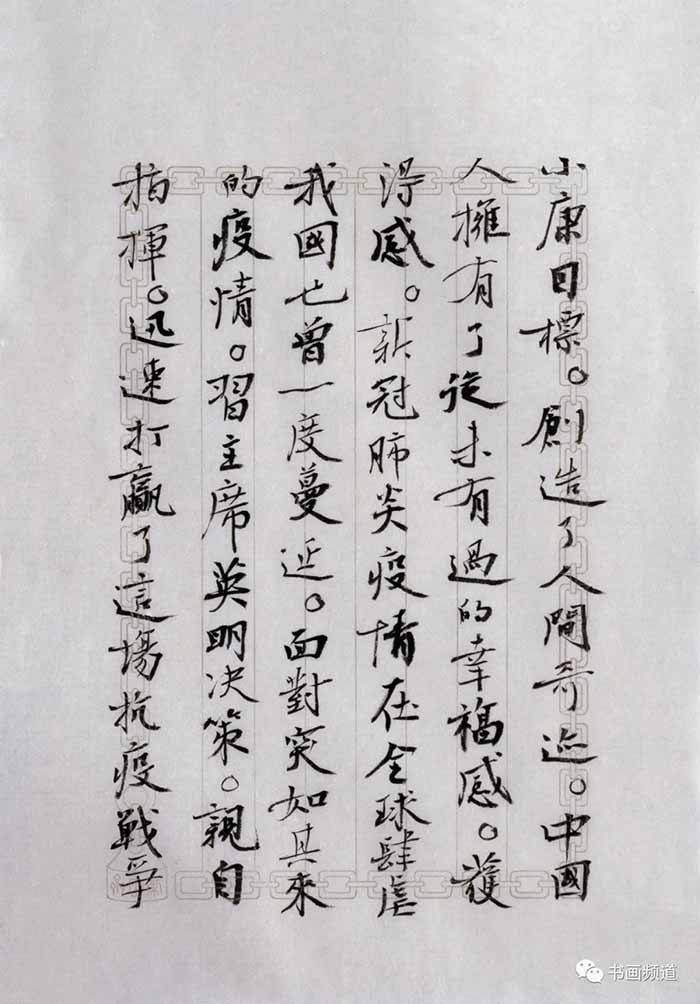 小康目標。創造了人間奇迹。中國
人擁有了從未有過的幸福感。獲
得感。新冠肺炎疫情在全球肆虐
我國也曾一度蔓延。面對突如其來
的疫情。習主席英明决策。親自
指揮。迅速打贏了這場抗疫戰爭
书画频道